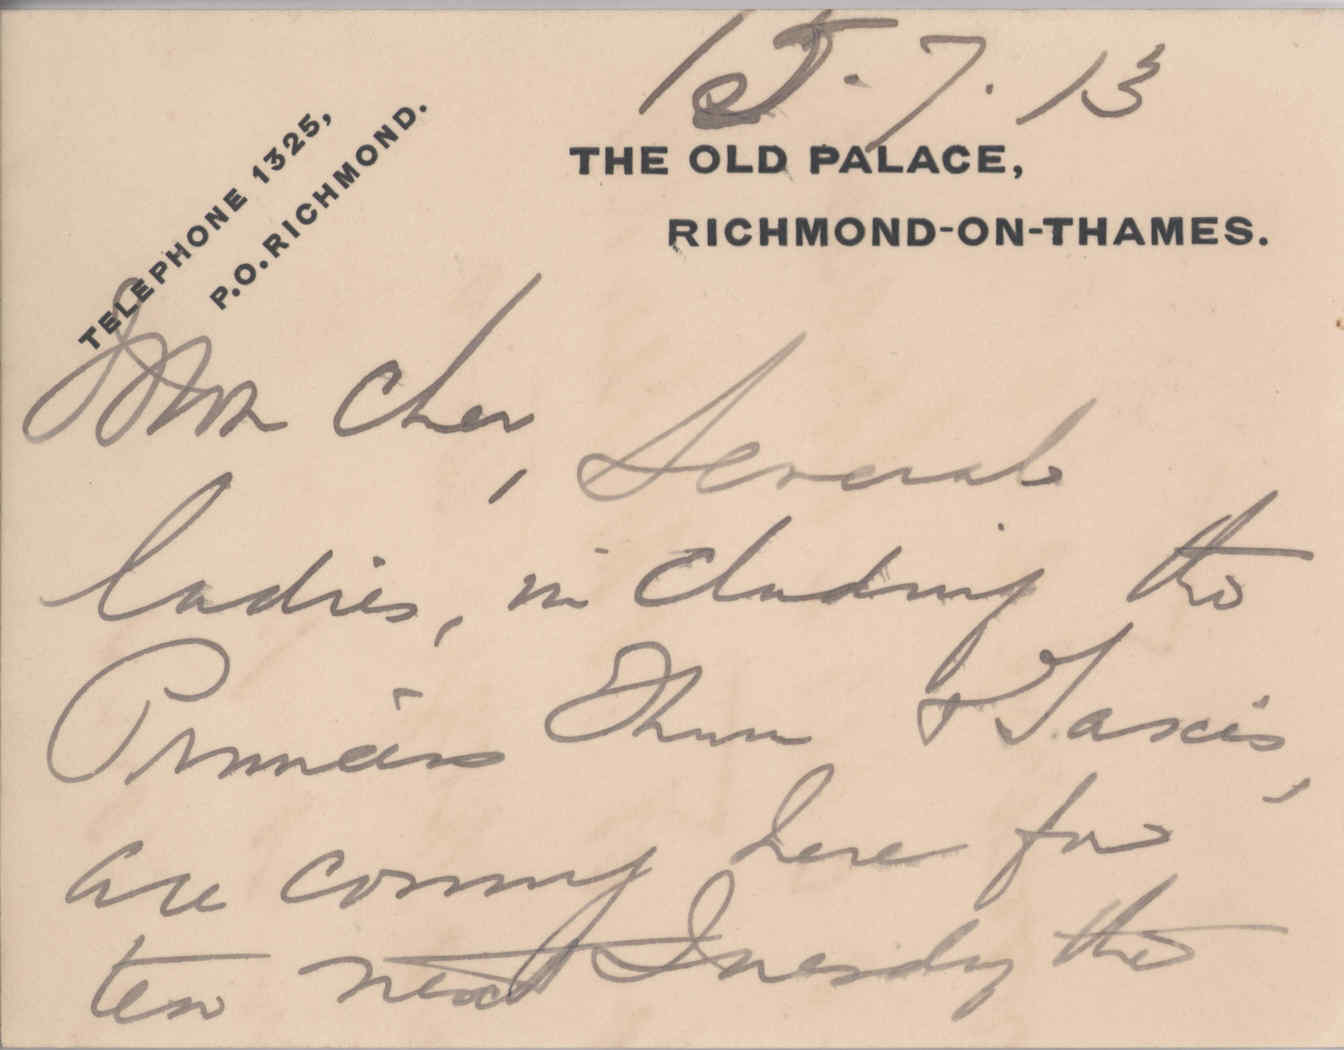 15.7.13
TELEPHONE 1325,
P.O. RICHMOND.
THE OLD PALACE,
RICHMOND-ON-THAMES.
Mon Cher, Several
ladies, including the
Princess Thurn & Taxis,
are coming here for
tea next Tuesday the